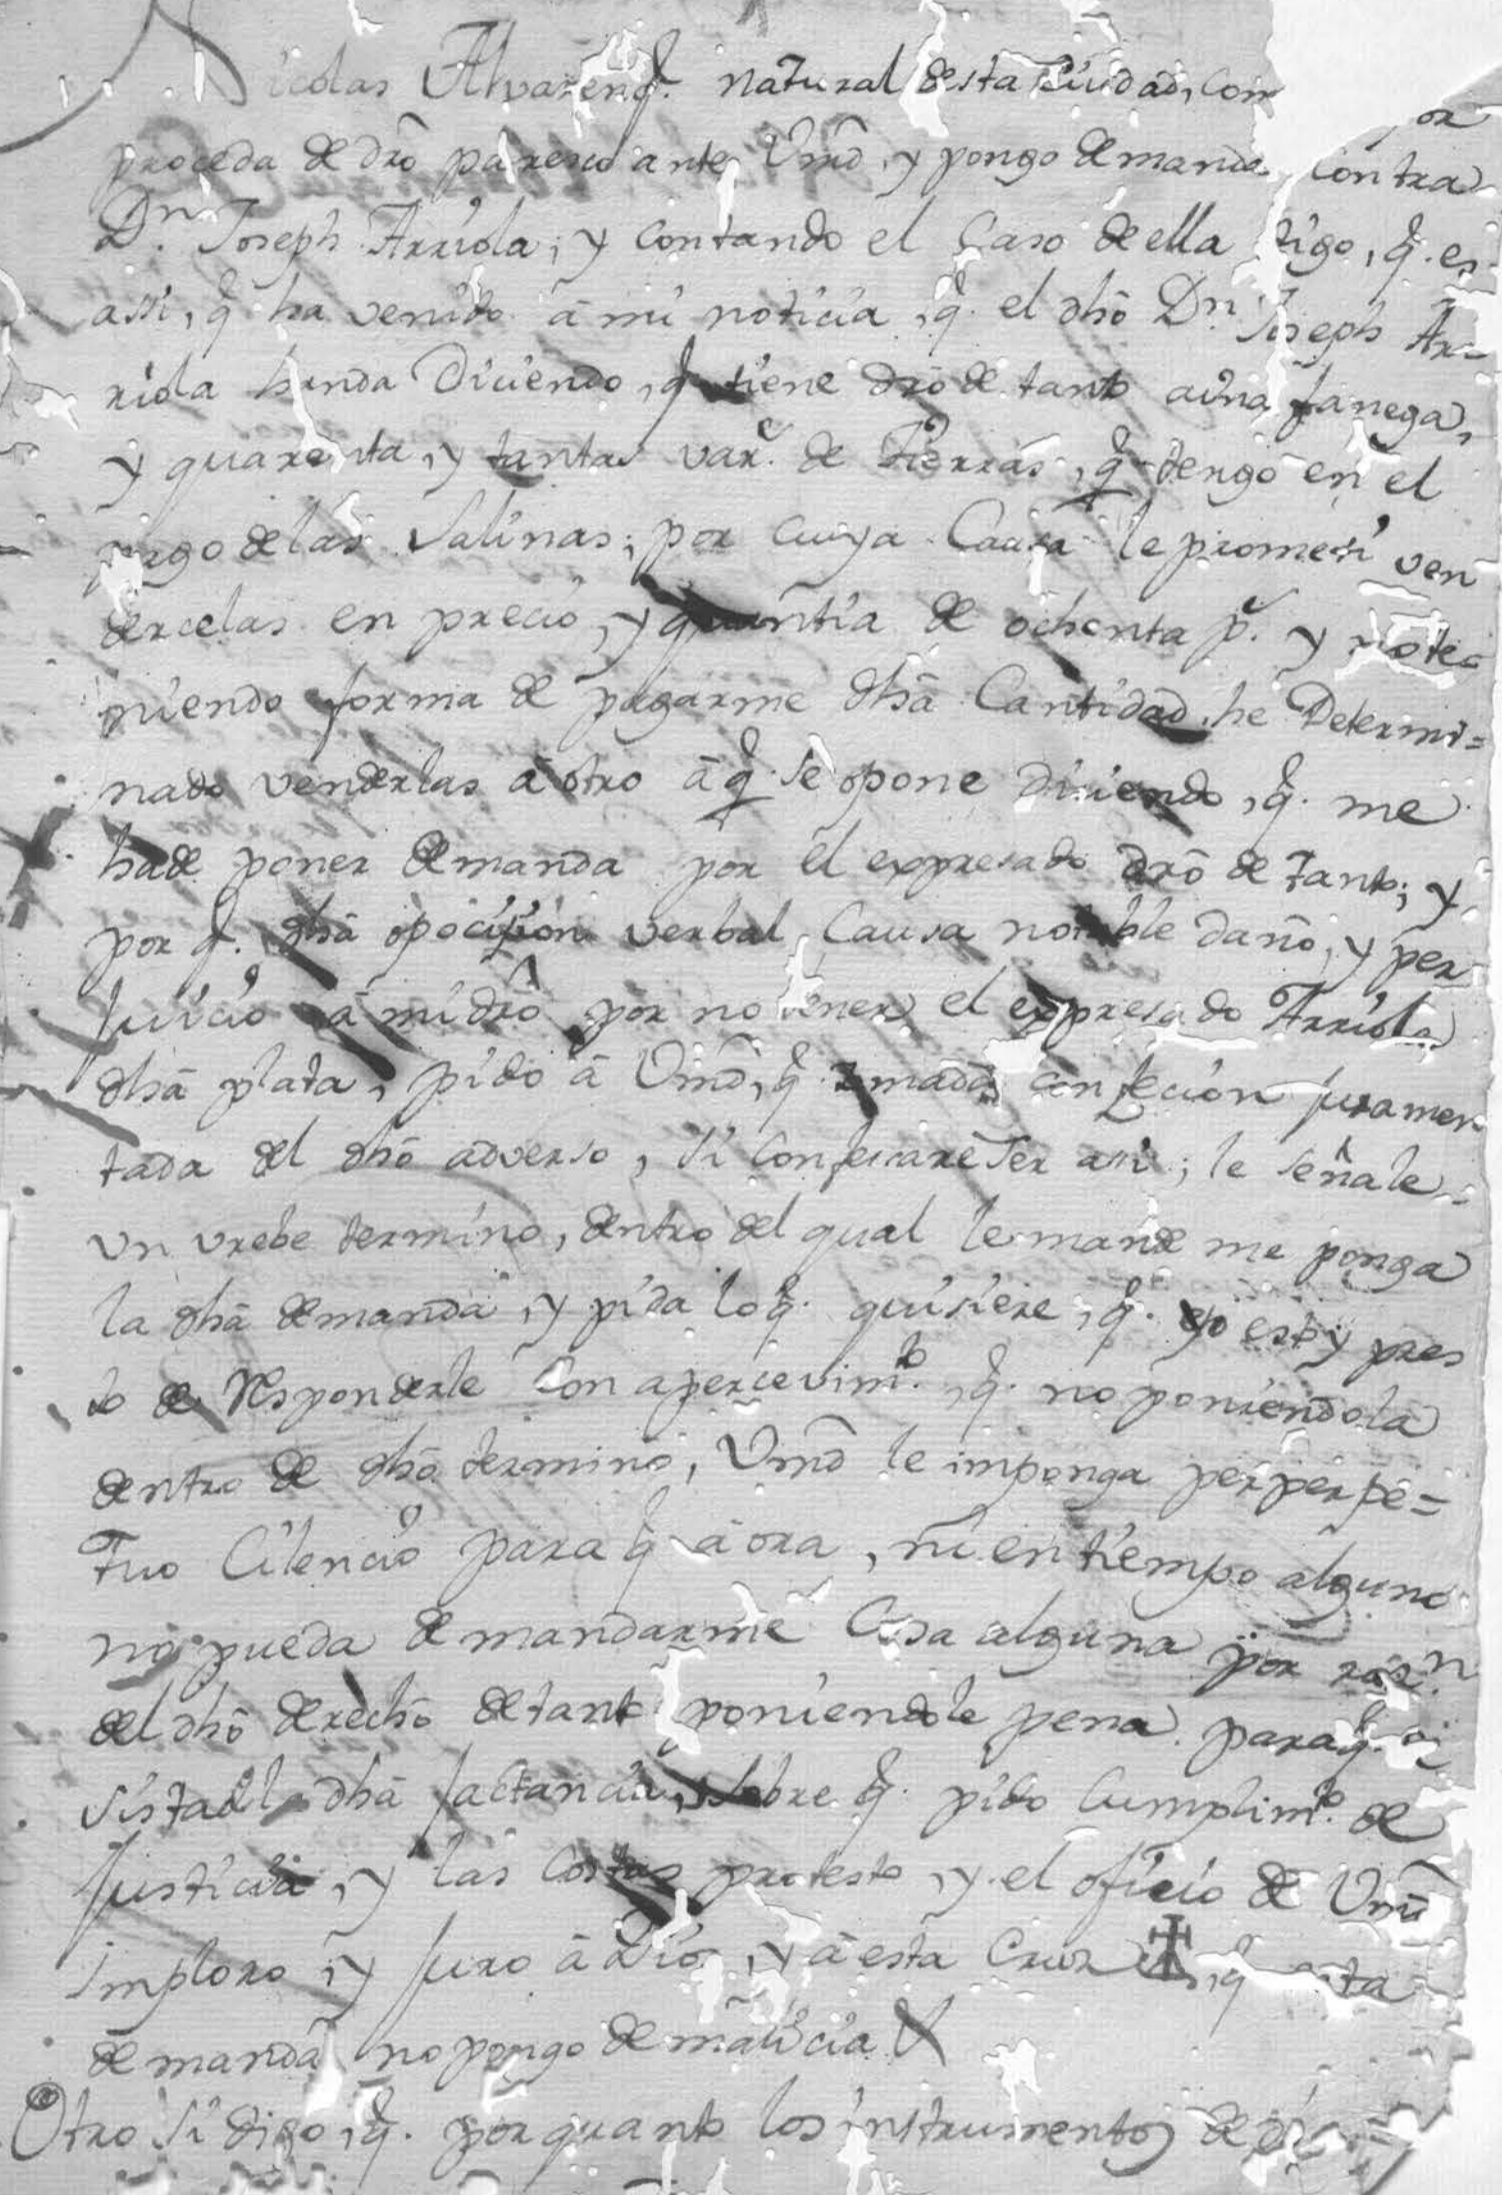 Nicolas Alvareng.ª natural desta Ciudad, Com
proceda de dro paresco ante Vmd, y pongo demanda contra
Dn. Joseph Arriola, y contando el Caso de ella digo, q̃. es
assi, q̃ ha venido â mi noticia, q̃. el dho Dn. Joseph Ar=
riola handa Diciendo, q̃ tiene dro de tanto aúna fanega,
y quarenta, y tantas var.s de Tierras, q̃ tengo en el
pago de las Salinas; por cuya Causa le prometi ven
dercelas en precio, y quantia de ochenta p.s y no te=
niendo forma de pagarme dha Cantidad, he Determi=
nado venderlas â otro â q̃ se opone diciendo, q̃. me
hade poner demanda por el expresado dro de tanto; y
por q̃. dha opocision verbal Causa notable daño, y per
juicio â mi dro por no tener el expresado Arriola
dha plata, pido â Vmd, q̃ tomada confecion juramen
tada del dho adverso, si confesare ser assi; le señale
un vrebe termino, dentro del qual le mande me ponga
la dha demanda, y pida lo q̃. quisiere, q̃. yo estoy pres
to de Responderle Con apercevim.to, q̃. no poniendola
dentro de dho termino, Vmd le imponga perperpe=
tuo Cilencio para q̃ âora, ni en tiempo alguno
no pueda demandarme Cosa alguna por ras.n
del dho derecho de tanto poniendole pena para q̃.
sista de la dha jactancia, sobre q̃. pido Cumplim.to de
Justicia, y las Costas protesto, y el oficio de Vmd
imploro, y juro â Dios, y â esta Cruz ✠, q̃ esta
demanda no pongo de malicia
Otro si digo, q̃. por quanto los instrumentos de